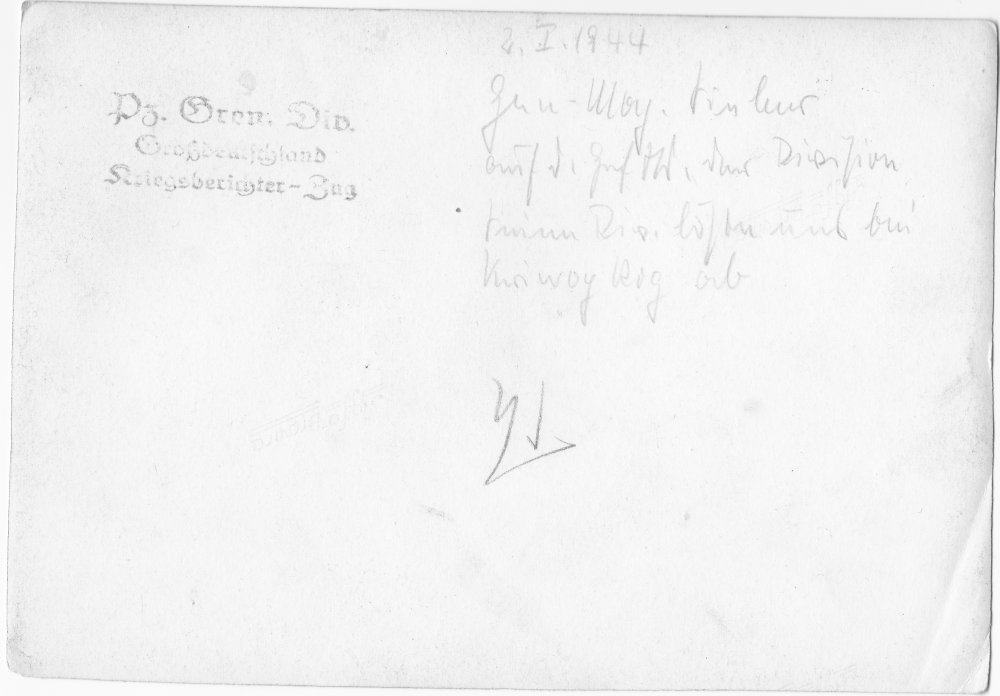 Pz. Gren. Div.
Großdeutschland
Kriegsberichter-Zug
2. I. 1944
Gen-Maj.
auf d. Gef. Std. der Division
Div. lösten uns bei
Kriwoy Rog ab